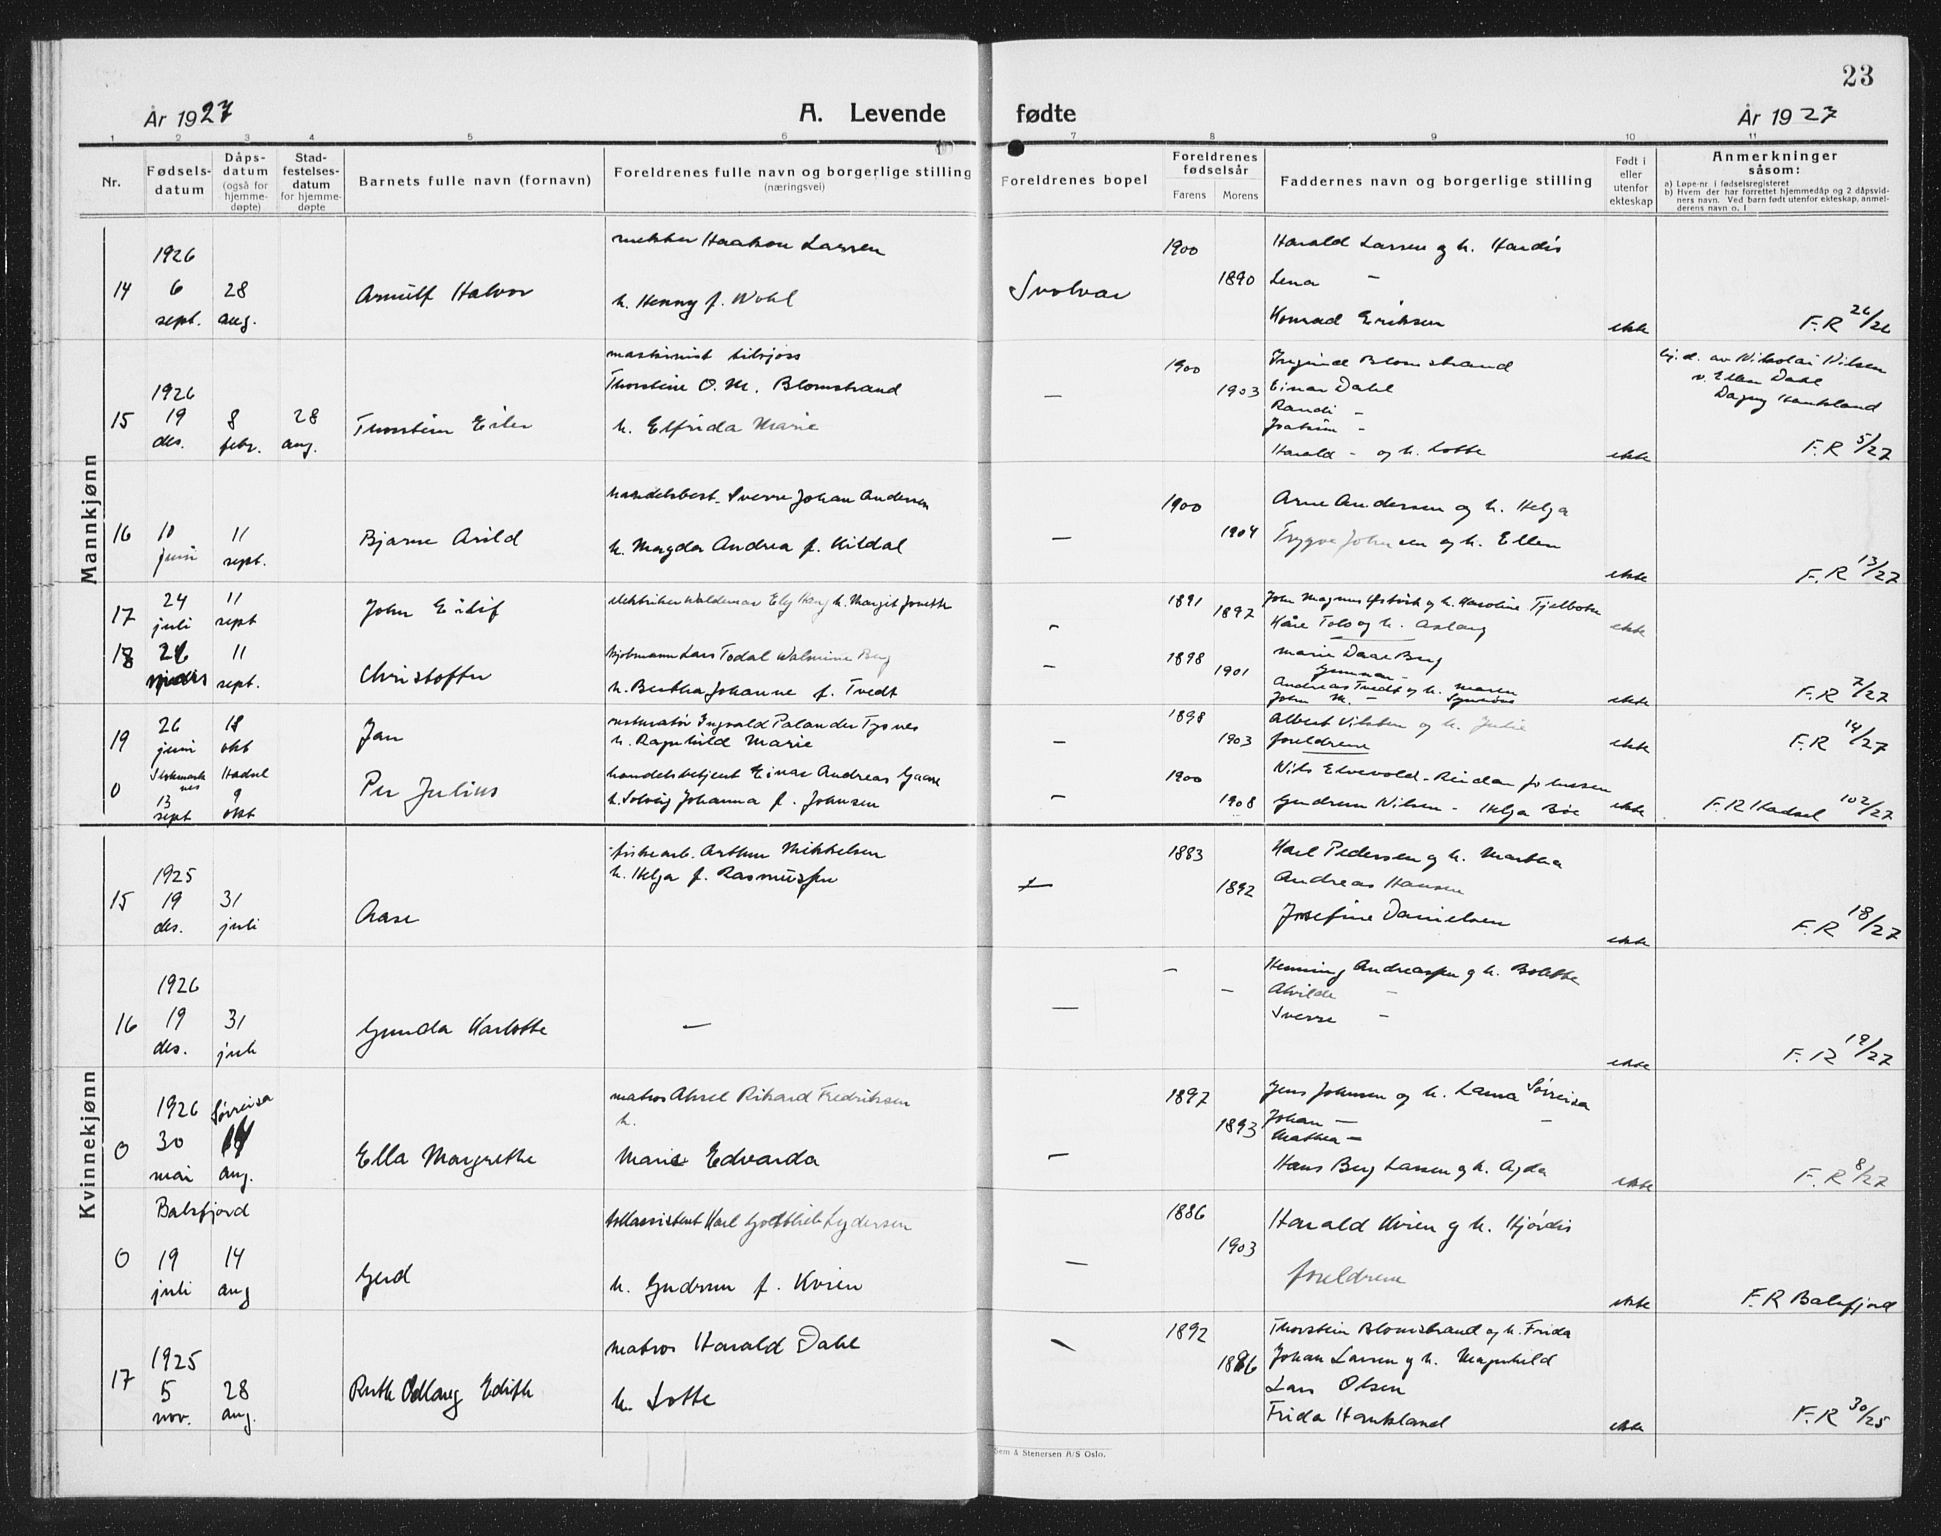 23
År 1927 A. Levende fødte År 1927
1 2 3 4 5 6 7 8 9 10 11
Nr.
Fødsels-
datum
Dåps-
datum
(også for
hjemme-
døpte)
Stad-
festelses-
datum
for hjemme-
døpte
Barnets fulle navn (fornavn)
Foreldrenes fulle navn og borgerlige stilling
(næringsvei)
Foreldrenes bopel
Foreldrenes
fødselsår
Farens Morens
Faddernes navn og borgerlige stilling
Født i
eller
utenfor
ekteskap
Anmerkninger
såsom:
a) Løpe-nr. i fødselsregisteret
b) Hvem der har forrettet hjemmedåp og 2 dåpsvid-
ners navn. Ved barn født utenfor ekteskap, anmel-
derens navn o. l
Mannkjønn
1926
14 6 sept. 28 aug. Arnulf Halvor
Haakon Larsen
h. Henny f. Wohl
Svolvær
1900 1890
Harald Larsen og h. Hardis
Lena –
Konrad Eriksen
ekte F.R 26/26
1926
15 19 des. 8 febr. 28 aug. Thorstein Eiler
maskinist
Thorstein O. M. Blomstrand
h. Elfrida Marie
–
1900 1903
Blomstrand
Einar Dahl
Randi –
Joakim –
Harald – og h. Lotte
ekte
hj. d. av Nikolai Nilsen
v. Ellen Dahl
Dagny Haukland
F.R 5/27
16 10 juni 11 sept. Bjarne Arild
handelsbest. Sverre Johan Andersen
h. Magda Andrea f. Kildal
–
1900 1904
Arne Andersen og h. Helga
Trygve Johnsen og h. Ellen
ekte F.R 13/27
17 24 juli 11 sept John Eilif
elektriker Waldemar h. Margit
–
1891 1897
John Magnus og h. Karoline
Kåre og h. Aslaug
ekte
18 11 sept. Christoffer
Lars Todal
h. Bertha Johanne f. Tvedt
–
1898 1901
Marie Daae Berg
Gunnar –
Andreas Tvedt og h. Maren
John M. –
ekte F.R 7/27
19 26 juni 18 okt Jan
Ingvald Palander Tysnes
h. Ragnhild Marie
–
1898 1903
Albert og h. Julie
foreldrene
ekte F.R 14/27
Stokmarknes Hadsel
0 13 sept 9 okt Per Julius
handelsbetjent Einar Andreas
h. Solveig Johanna f. Johnsen
–
1900 1908
Nils Elvevold –
Gudrun Nilsen – Helga Bøe
ekte F.R Hadsel 102/27
Kvinnekjønn
1925
15 19 des. 31 juli Aase
fiskearb. Arthur Mikkelsen
h. Helga f. Rasmussen
–
1883 1892
Karl Pedersen og h. Martha
Andreas Hansen
Josefine Danielsen
ekte F.R 18/27
1926
16 19 des. 31 juli Gunda Karlotte
–
–
– –
Henning Andreassen og h. Bolette
Alvilde –
Sverre –
ekte F.R 19/27
1926 Sørreisa
0 30 mai 14 aug. Ella Margrethe
matros Aksel Rikard Fredriksen
h.
Marie Edvarda
–
1897 1893
Jens Johnsen og h. Laura Sørreisa
Johan – –
Mathea –
Hans Berg Larsen og h. Agda
ekte F.R 8/27
Balsfjord
0 19 juli 14 aug Gerd
tollassistent Karl Gottlieb Lydersen
h. Gudrun f. Kvien
–
1886 1903
Harald Kvien og h. Hjørdis
foreldrene
ekte F.R Balsfjord
1925
17 5 nov. 28 aug. Ruth Odlaug Edith
matros Harald Dahl
h. Lotte
–
1892 1896
Thorstein Blomstrand og h. Frida
Johan Larsen og h. Magnhild
Lars Olsen
Frida Haukland
ekte F.R 30/25
Sem & Stenersen A/S Oslo.